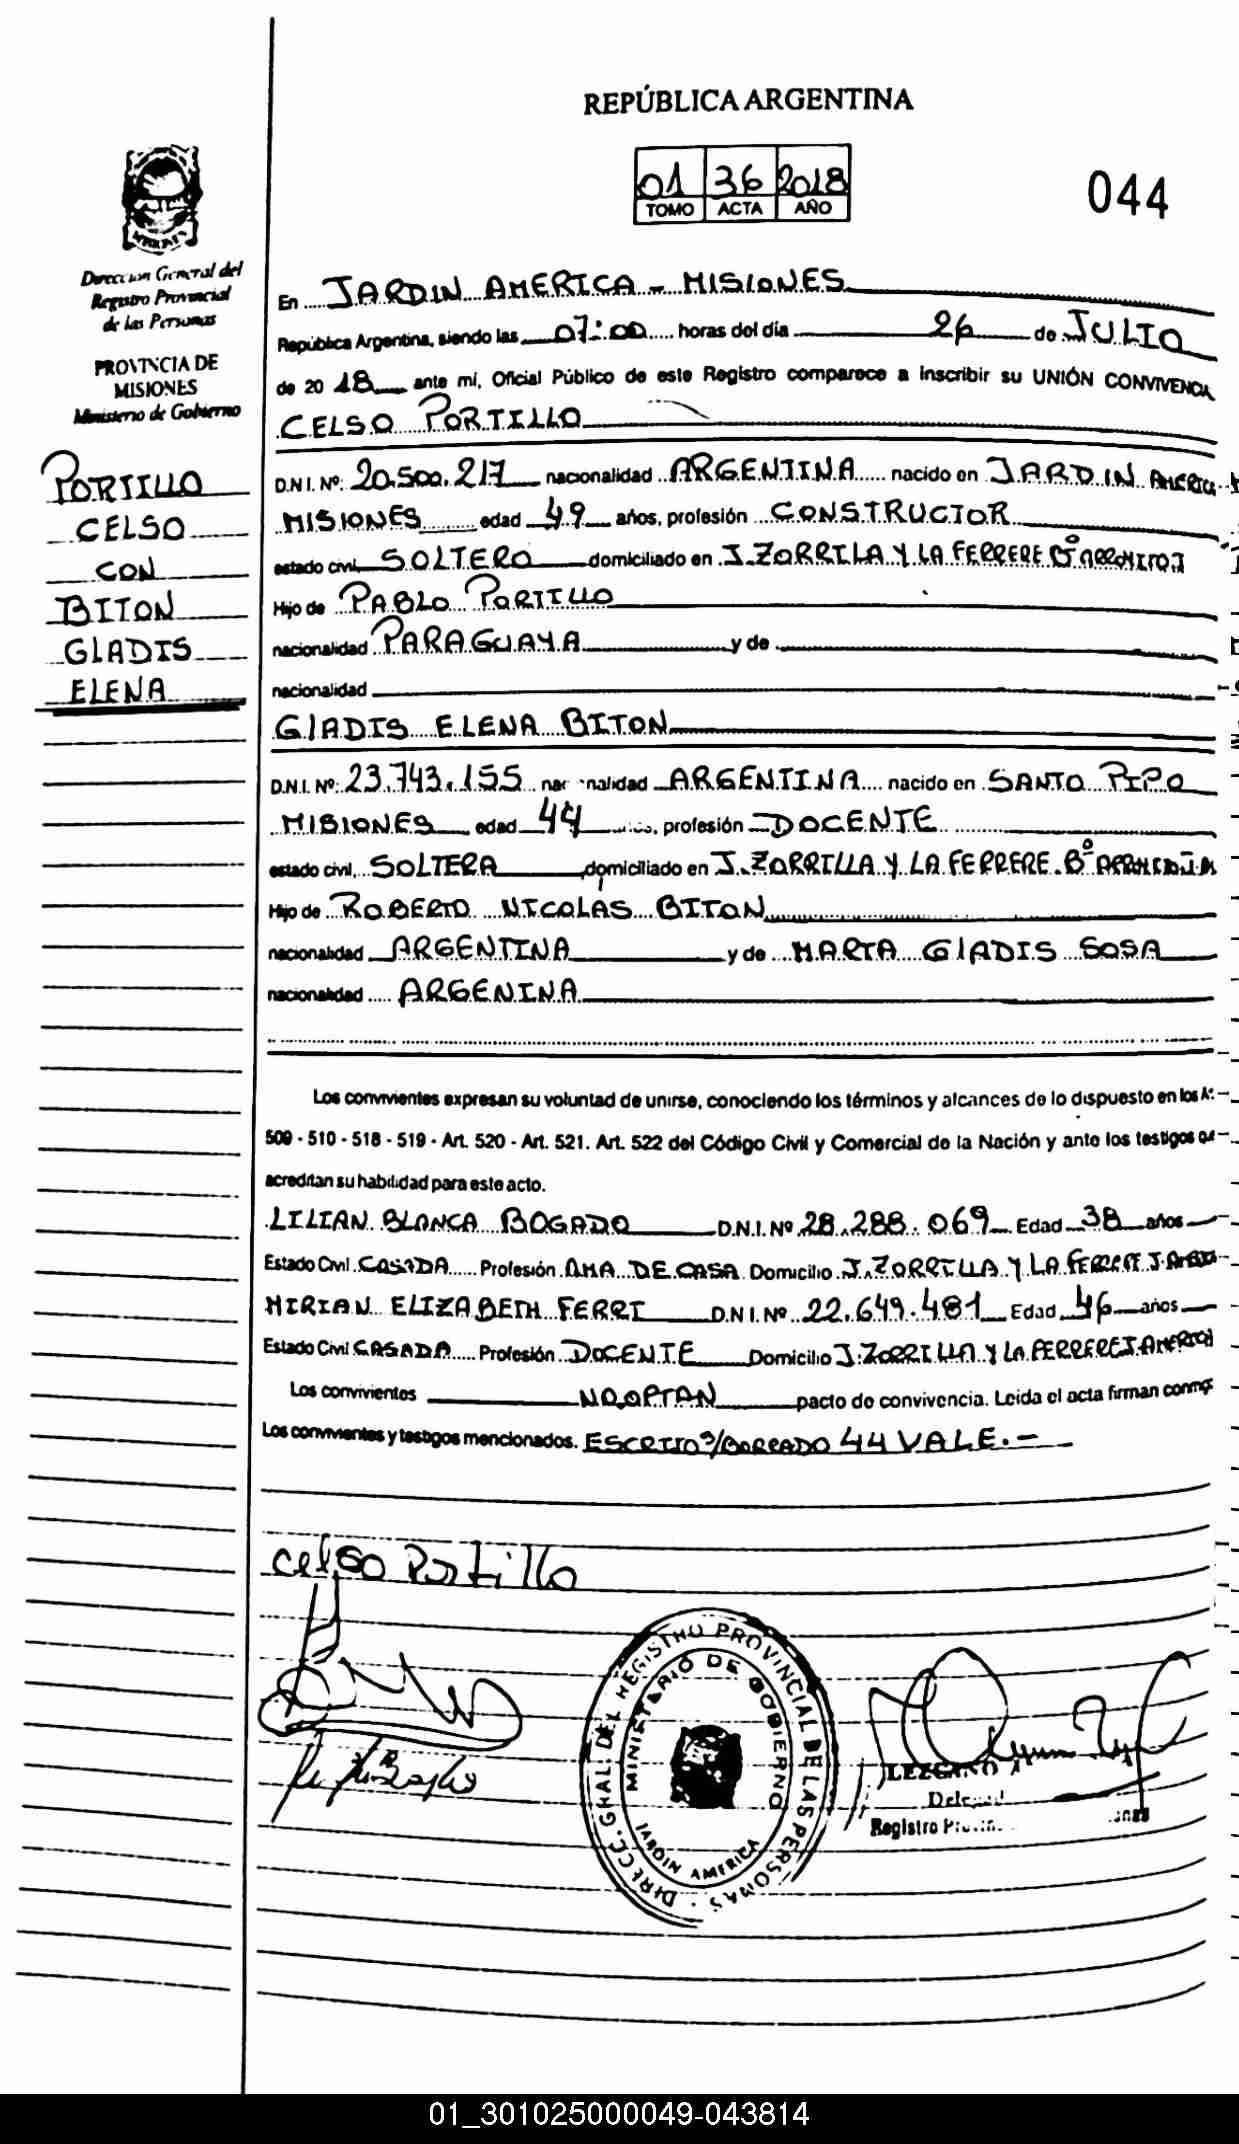 REPÚBLICA ARGENTINA
01 36 2018
TOMO ACTA AÑO
044
Dirección General del
Registro Provincial
de las Personas
PROVINCIA DE
MISIONES
Ministerio de Gobierno
PORTILLO
CELSO
CON
BITON
GLADIS
ELENA
En JARDIN AMERICA - MISIONES
República Argentina, siendo las 07:00 horas del día 26 de JULIO
de 20 18 ante mí, Oficial Público de este Registro comparece a inscribir su UNIÓN CONVIVENCIA
CELSO PORTILLO
D.N.I. Nº: 20.500.217 nacionalidad ARGENTINA nacido en JARDIN AMERICA
MISIONES edad 49 años, profesión CONSTRUCTOR
estado civil, SOLTERO domiciliado en J. ZORRILA Y LA FERRERE Bº
Hijo de PABLO PORTILLO
nacionalidad PARAGUAYA y de
nacionalidad
GLADIS ELENA BITON
D.N.I. Nº: 23.743.155 nac nalidad ARGENTINA nacido en SANTO PIPO
MISIONES edad 44 profesión DOCENTE
estado civil, SOLTERA domiciliado en J. ZORRILLA Y LA FERRERE. Bº
Hijo de ROBERTO NICOLAS BITON
nacionalidad ARGENTINA y de MARTA GLADIS SOSA
nacionalidad ARGENINA
Los convivientes expresan su voluntad de unirse, conociendo los términos y alcances de lo dispuesto en los
509 - 510 - 518 - 519 - Art. 520 - Art. 521. Art. 522 del Código Civil y Comercial de la Nación y ante los testigos
acreditan su habilidad para este acto.
LILIAN BLANCA BOGADO D.N.I. Nº 28.288.069 Edad 38 años
Estado Civil CASADA Profesión AMA DE CASA Domicilio J. ZORRILLA Y LA FERRERE
MIRIAN ELIZABETH FERRI D.N.I. Nº 22.649.481 Edad 46 años
Estado Civil CASADA Profesión DOCENTE Domicilio J. ZORRILLA Y LA FERRERE J. AMERICA
Los convivientes NO OPTAN pacto de convivencia. Leida el acta firman
Los convivientes y testigos mencionados. ESCRITO S/BORRADO 44 VALE.-
Celso Portillo
DIRECC. GRAL. DEL REGISTRO PROVINCIAL DE LAS PERSONAS
MINISTERIO DE GOBIERNO
JARDIN AMERICA
LEZCANO
Registro
01_301025000049-043814